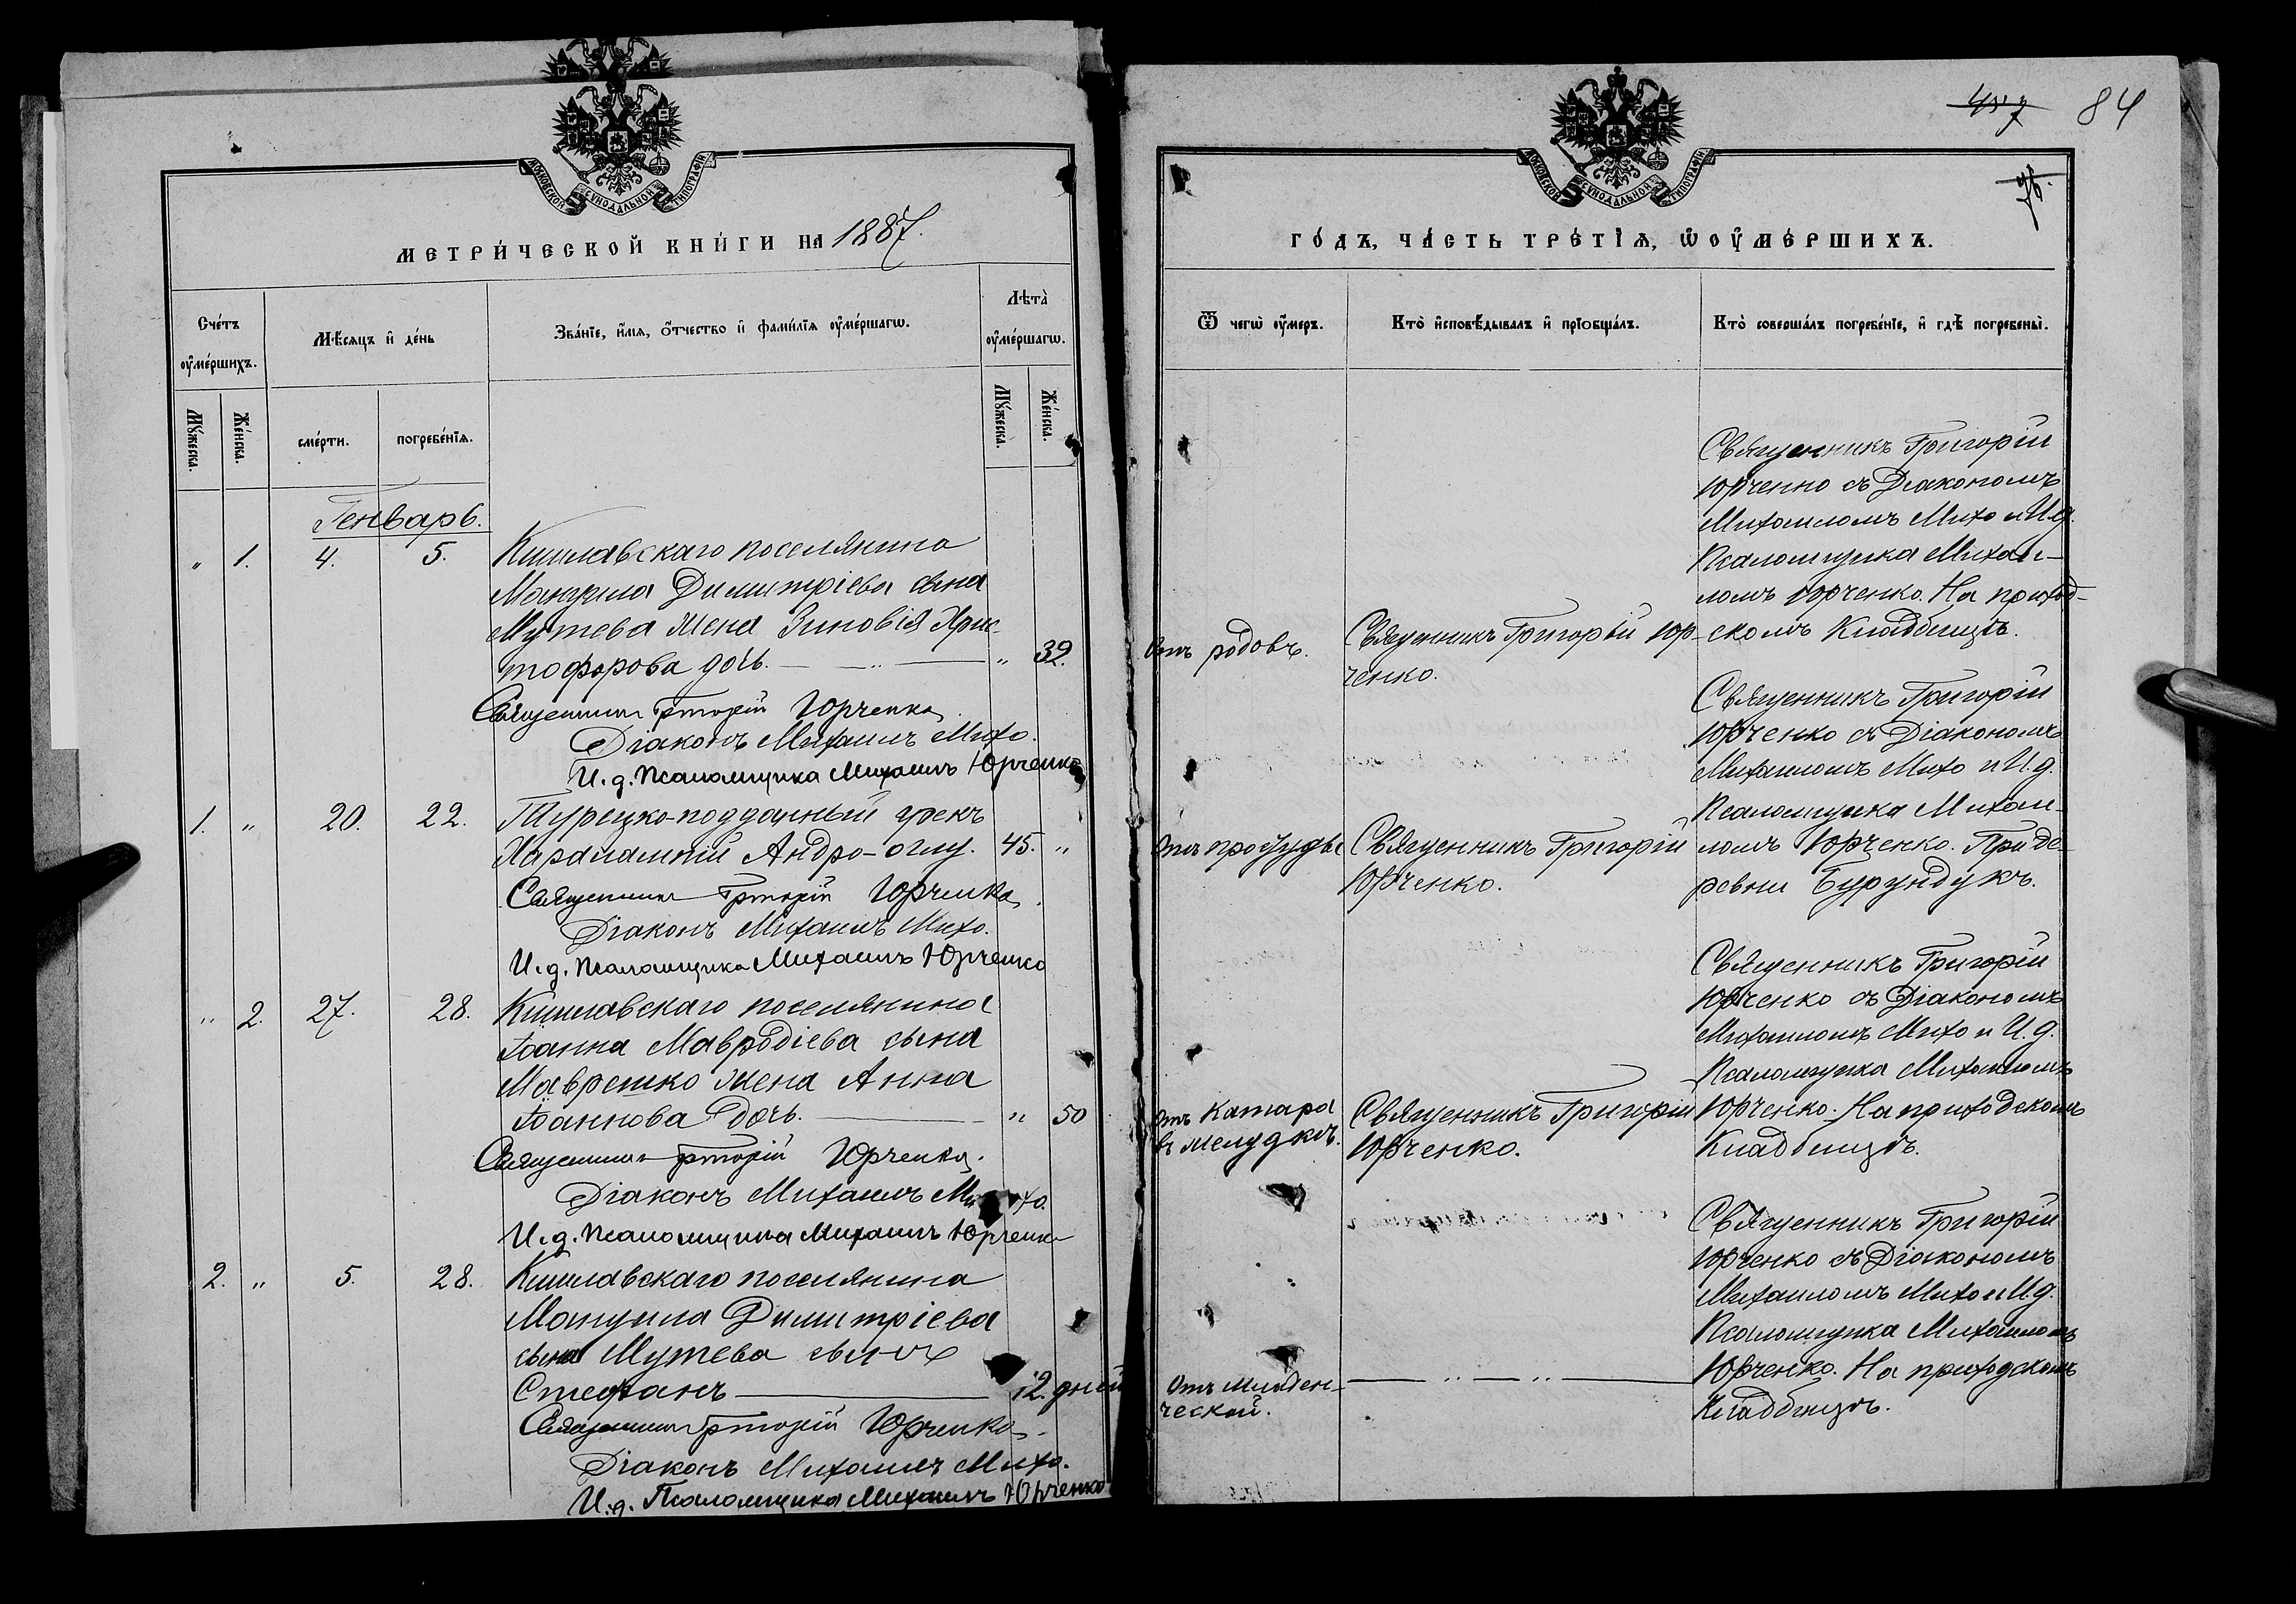 МОСКОВСКОЙ СѴНОДАЛЬНОЙ ТИПОГРАФІИ
МЕТРИ́ЧЕСКОЙ КНИ́ГИ НА 1887.
Сче́тъ ᲂу҆ме́ршихъ.
Мѣ́сяцъ и҆ де́нь
Зва́нїе, и҆́мѧ, ѻ҆́тчество и҆ фами́лїѧ ᲂу҆ме́ршагѡ.
Лѣта̀ ᲂу҆ме́ршагѡ.
Мꙋ́жеска.
Же́нска.
сме́рти.
погребе́нїѧ.
Мꙋ́жеска.
Же́нска.
Генварь.
" 1. 4. 5. Кишлавскаго поселянина
Мануила Димитріева сына
Мутева жена Зиновія Хрис-
тофорова дочь. " 39.
Священникъ Григорій Юрченко
Діаконъ Михаилъ Михо.
И. д. Псаломщика Михаилъ Юрченко
1. " 20. 22. Турецко-подданный грекъ
Харалампій Андро-оглу. 45. "
Священникъ Григорій Юрченко
Діаконъ Михаилъ Михо.
И. д. Псаломщика Михаилъ Юрченко
" 2. 27. 28. Кишлавскаго поселянина
Іоанна Мавродіева сына
Маврешко жена Анна
Іоаннова дочь. " 50
Священникъ Григорій Юрченко.
Діаконъ Михаилъ Михо.
И. д. Псаломщика Михаилъ Юрченко
2. " 5. 28. Кишлавскаго поселянина
Мануила Димитріева
сына Мутева сынъ
Стефанъ 12. дней
Священникъ Григорій Юрченко.
Діаконъ Михаилъ Михо.
И. д. Псаломщика Михаилъ Юрченко
84
МОСКОВСКОЙ СѴНОДАЛЬНОЙ ТИПОГРАФІИ
ГО́ДЪ, ЧА́СТЬ ТРЕ́ТЇѦ, Ѡ҆ ОУ҆МЕ́РШИХЪ.
Ѿ чегѡ̀ ᲂу҆́меръ.
Кто̀ и҆сповѣ́дывалъ и҆ прїѡбща́лъ.
Кто̀ соверша́лъ погребе́нїе, и҆ гдѣ̀ погребены̀.
Священникъ Григорій
Юрченко съ Діакономъ
Михаиломъ Михо и И. д.
Псаломщика Михаи-
ломъ Юрченко. На приход-
скомъ Кладбищѣ.
Отъ родовъ.
Священникъ Григорій Юр-
ченко.
Священникъ Григорій
Юрченко съ Діакономъ
Михаиломъ Михо и И. д.
Псаломщика Михаи-
ломъ Юрченко. При де-
ревни Бурундукъ.
Отъ простуды
Священникъ Григорій
Юрченко.
Священникъ Григорій
Юрченко съ Діакономъ
Михаиломъ Михо и И. д.
Псаломщика Михаиломъ
Юрченко. На приходскомъ
Кладбищѣ.
Отъ Катара
въ желудкѣ.
Священникъ Григорій
Юрченко.
Священникъ Григорій
Юрченко съ Діакономъ
Михаиломъ Михо и И. д.
Псаломщика Михаиломъ
Юрченко. На приходскомъ
Кладбищѣ.
Отъ младен-
ческой.